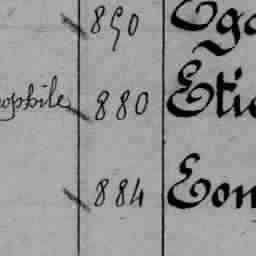 890 Ega
ophile 880 Etie
884 Eon